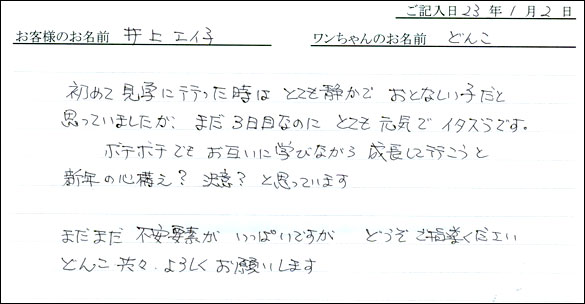 ご記入日 23 年 1 月 2 日
お客様のお名前 井上 エイ子 ワンちゃんのお名前 どんこ
初めて 見学に行った時は とても静かで おとなしい子だと
思っていましたが、まだ 3日目なのに とても 元気で イタズラです。
ボチボチでも お互いに学びながら 成長して行こうと
新年の心構え? 決意? と思っています
まだまだ 不安要素が いっぱいですが どうぞ ご指導ください
どんこ 共々、よろしく お願いします